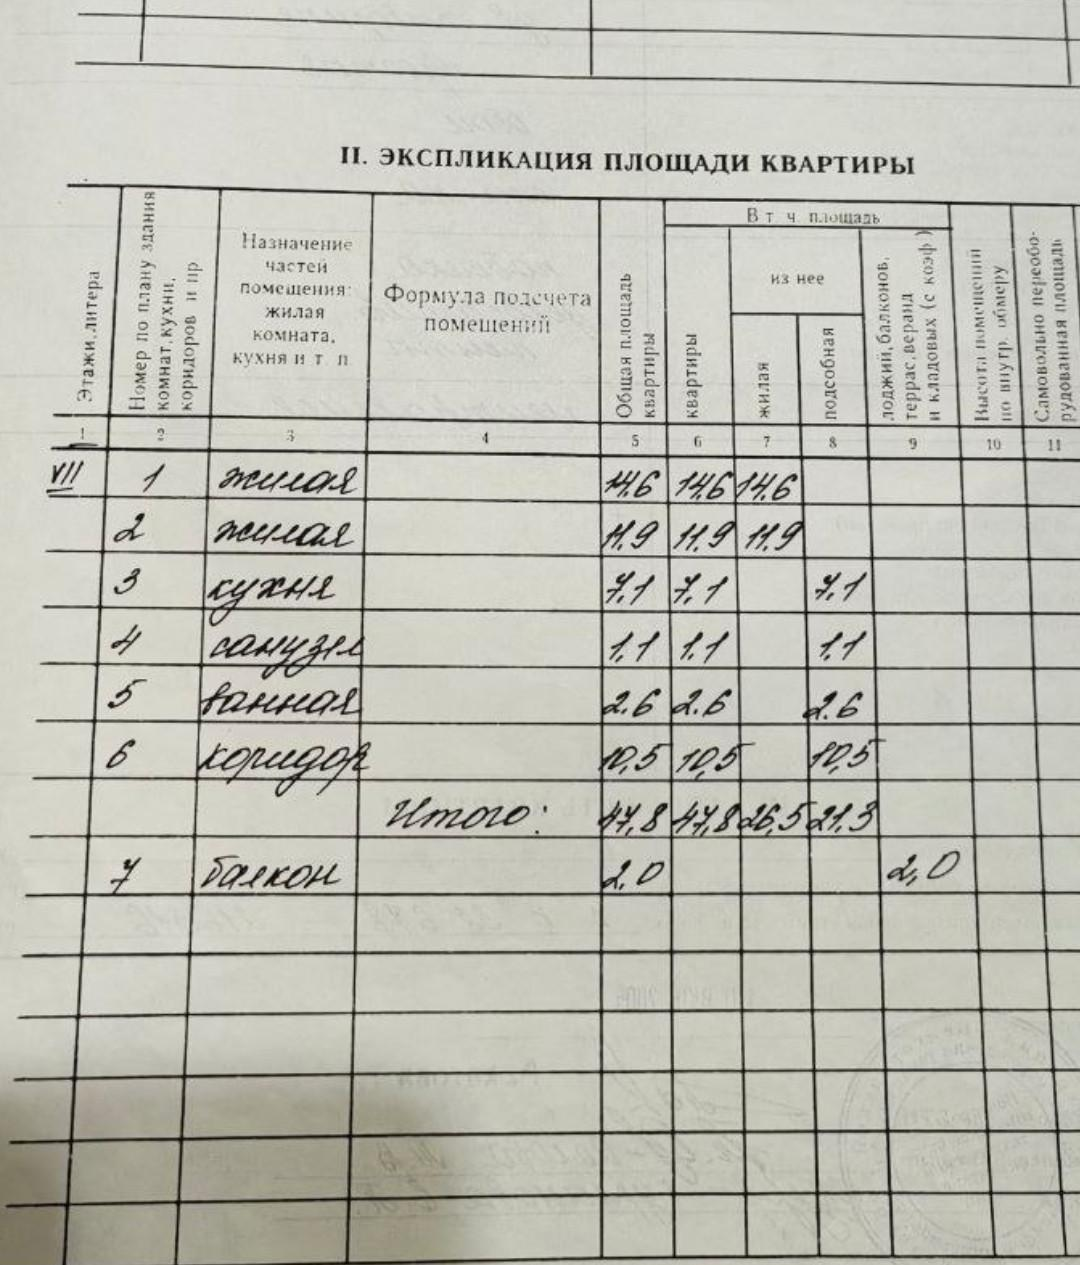 II. ЭКСПЛИКАЦИЯ ПЛОЩАДИ КВАРТИРЫ
Этажи, литера
Номер по плану здания комнат, кухни, коридоров и пр
Назначение
частей
помещения:
жилая
комната,
кухня и т. п
Формула подсчета
помещений
Общая площадь квартиры
В т. ч. площадь
квартиры
из нее
жилая
подсобная
лоджий, балконов, террас, веранд и кладовых (с коэф )
Высота помещений по внутр. обмеру
Самовольно переобо-
рудованная площадь
1 2 3 4 5 6 7 8 9 10 11
VII 1 жилая 14,6 14,6 14,6
2 жилая 11,9 11,9 11,9
3 кухня 7,1 7,1 7,1
4 санузел 1,1 1.1 1,1
5 ванная 2.6 2.6 2.6
6 коридор 10,5 10,5 10,5
Итого: 47,8 47,8 26,5 21,3
7 балкон 2,0 2,0